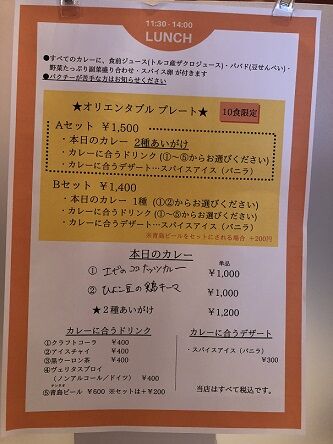 11:30 - 14:00
LUNCH
●すべてのカレーに、食前ジュース(トルコ産ザクロジュース)・パパド(豆せんべい)・
野菜たっぷり副菜盛り合わせ・スパイス卵 が付きます
●パクチーが苦手な方はお知らせください
★オリエンタブル プレート★ 10食限定
Aセット ¥1,500
・本日のカレー 2種あいがけ
・カレーに合うドリンク (①～⑤からお選びください)
・カレーに合うデザート…スパイスアイス (バニラ)
Bセット ¥1,400
・本日のカレー 1種 (①②からお選びください)
・カレーに合うドリンク (①～⑤からお選びください)
・カレーに合うデザート…スパイスアイス (バニラ)
※青島ビールをセットにされる場合 +200円
本日のカレー
単品
① エビのココナッツカレー ¥1,000
② ひよこ豆の鶏キーマ ¥1,000
★2種あいがけ ¥1,200
カレーに合うドリンク
①クラフトコーラ ¥400
②アイスチャイ ¥400
③黒ウーロン茶 ¥400
④ヴェリタスブロイ
(ノンアルコール/ドイツ) ¥400
⑤青島ビール ¥600 ※セットは+¥200
カレーに合うデザート
・スパイスアイス (バニラ)
¥300
当店はすべて税込です。